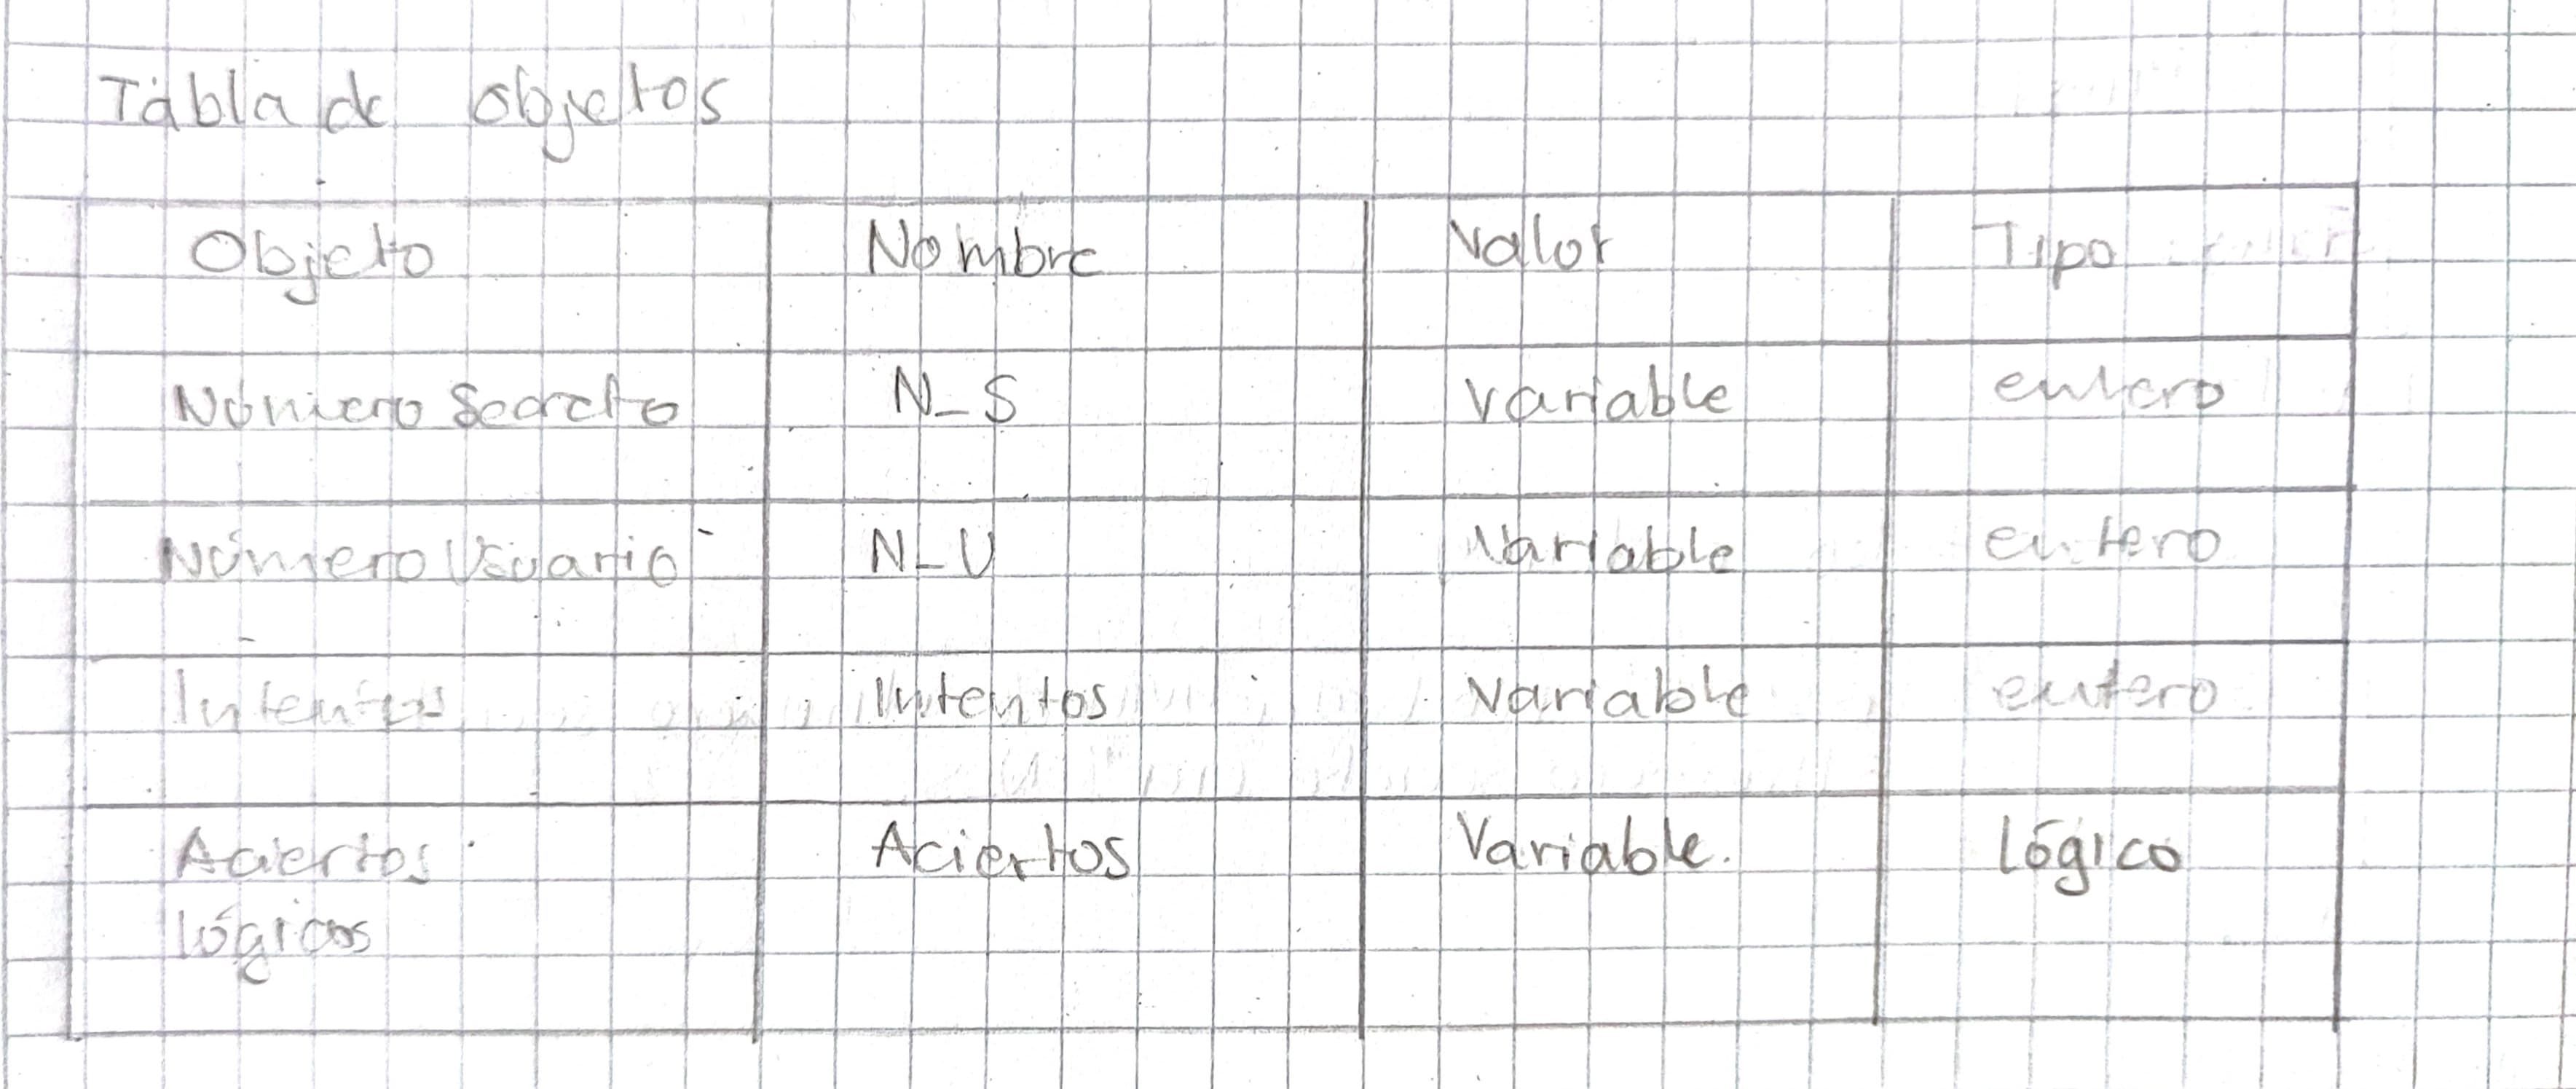 Tabla de objetos
Objeto Nombre Valor Tipo
Número Secreto N_S Variable entero
Número Usuario N_U Variable entero
Intentos Intentos Variable entero
Aciertos Aciertos Variable. lógico
lógicos